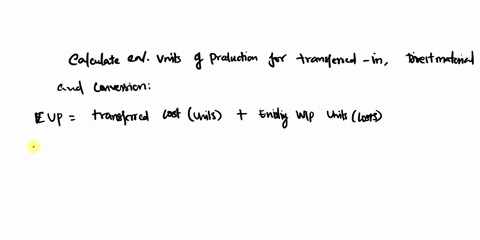 Calculate eqv. units of production for transferred-in, Direct material
and conversion:
EUP = transferred cost (units) + Ending WIP units (costs)